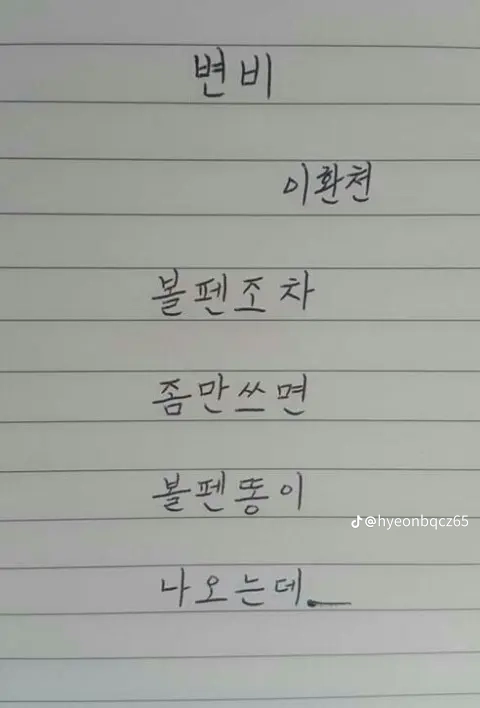 변비
이환천
볼펜조차
좀만쓰면
볼펜똥이
@hyeonbqcz65
나오는데